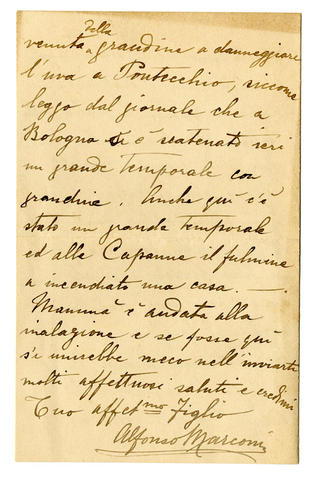 della
venuta a grandine a danneggiare
l'uva a Pontecchio, siccome
leggo dal giornale che a
Bologna si è scatenato ieri
un grande temporale con
grandine. Anche quì c'è
stato un grande temporale
ed alle Capanne il fulmine
a incendiato una casa. —
Mammà è andata alla
inalazione e se fosse quì
s'unirebbe meco nell'inviarti
molti affettuosi saluti e credimi
Tuo affet.mo Figlio
Alfonso Marconi